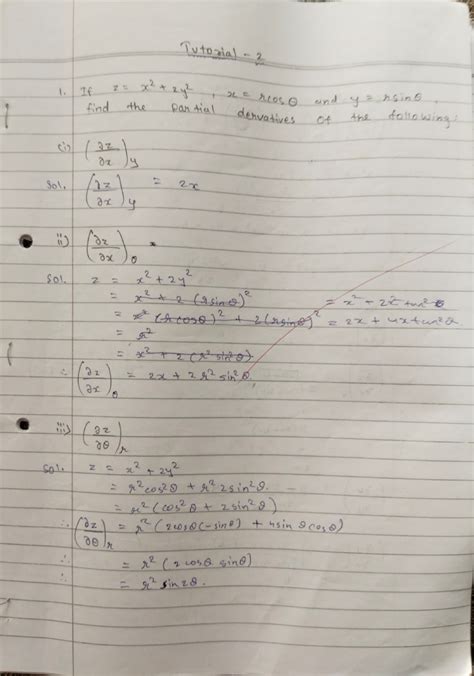 Tutorial - 2
1. If z = x² + 2y², x = rcosθ and y = rsinθ,
find the partial dervatives of the following:
(i) (∂z/∂x)y
Sol. (∂z/∂x)y = 2x
ii) (∂z/∂x)θ
Sol. z = x² + 2y²
= x² + 2 (rsinθ)² = x² + 2x² tan²θ
= (rcosθ)² + 2(rsinθ)² = 2x + 4x tan²θ
= r²
= x² + 2 (r² sin²θ)
∴ (∂z/∂x)θ = 2x + 2r² sin²θ
iii) (∂z/∂θ)r
Sol. z = x² + 2y²
= r²cos²θ + r² 2sin²θ.
= r² (cos²θ + 2sin²θ)
∴ (∂z/∂θ)r = r² (2cosθ(-sinθ) + 4sinθcosθ)
∴ = r² (2cosθ.sinθ)
∴ = r² sin2θ.